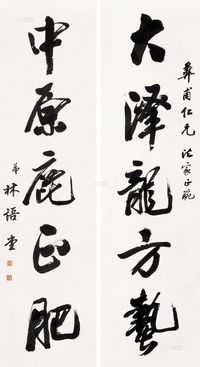 彝甫仁兄法家正腕
大泽龍方蟄
中原鹿正肥
弟林語堂